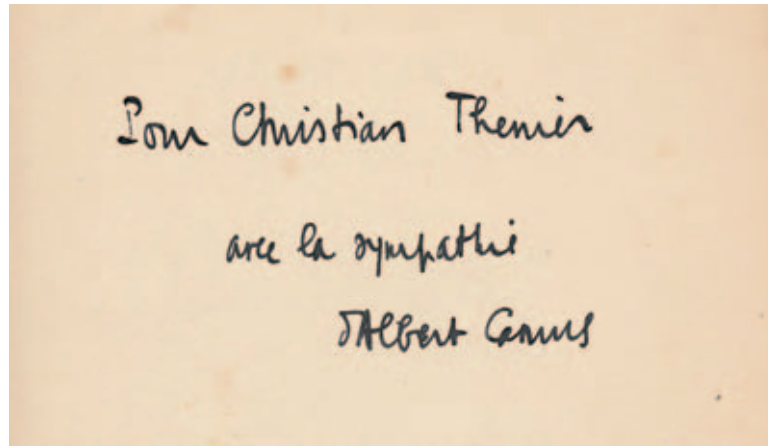 Pour Christian Themier
avec la sympathie
d'Albert Camus